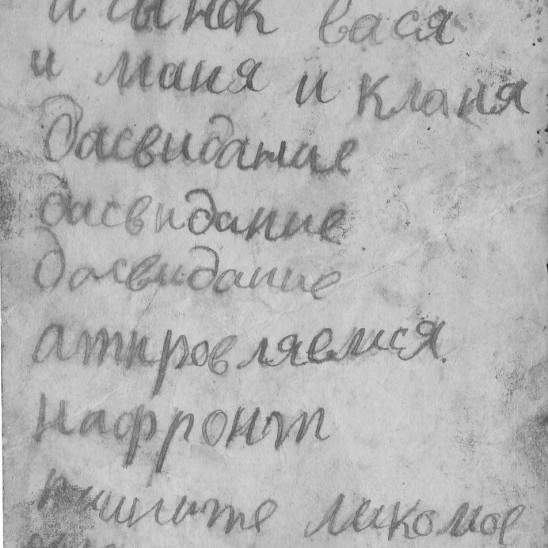 и сынок вася
и маня и кланя
Дасвидание
дасвидание
Досвидание
атправляемся
нафронт
пишите